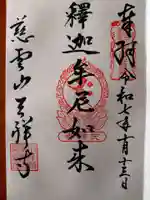 奉拝 令和七年十月十三日
釋迦牟尼如来
慈雲山